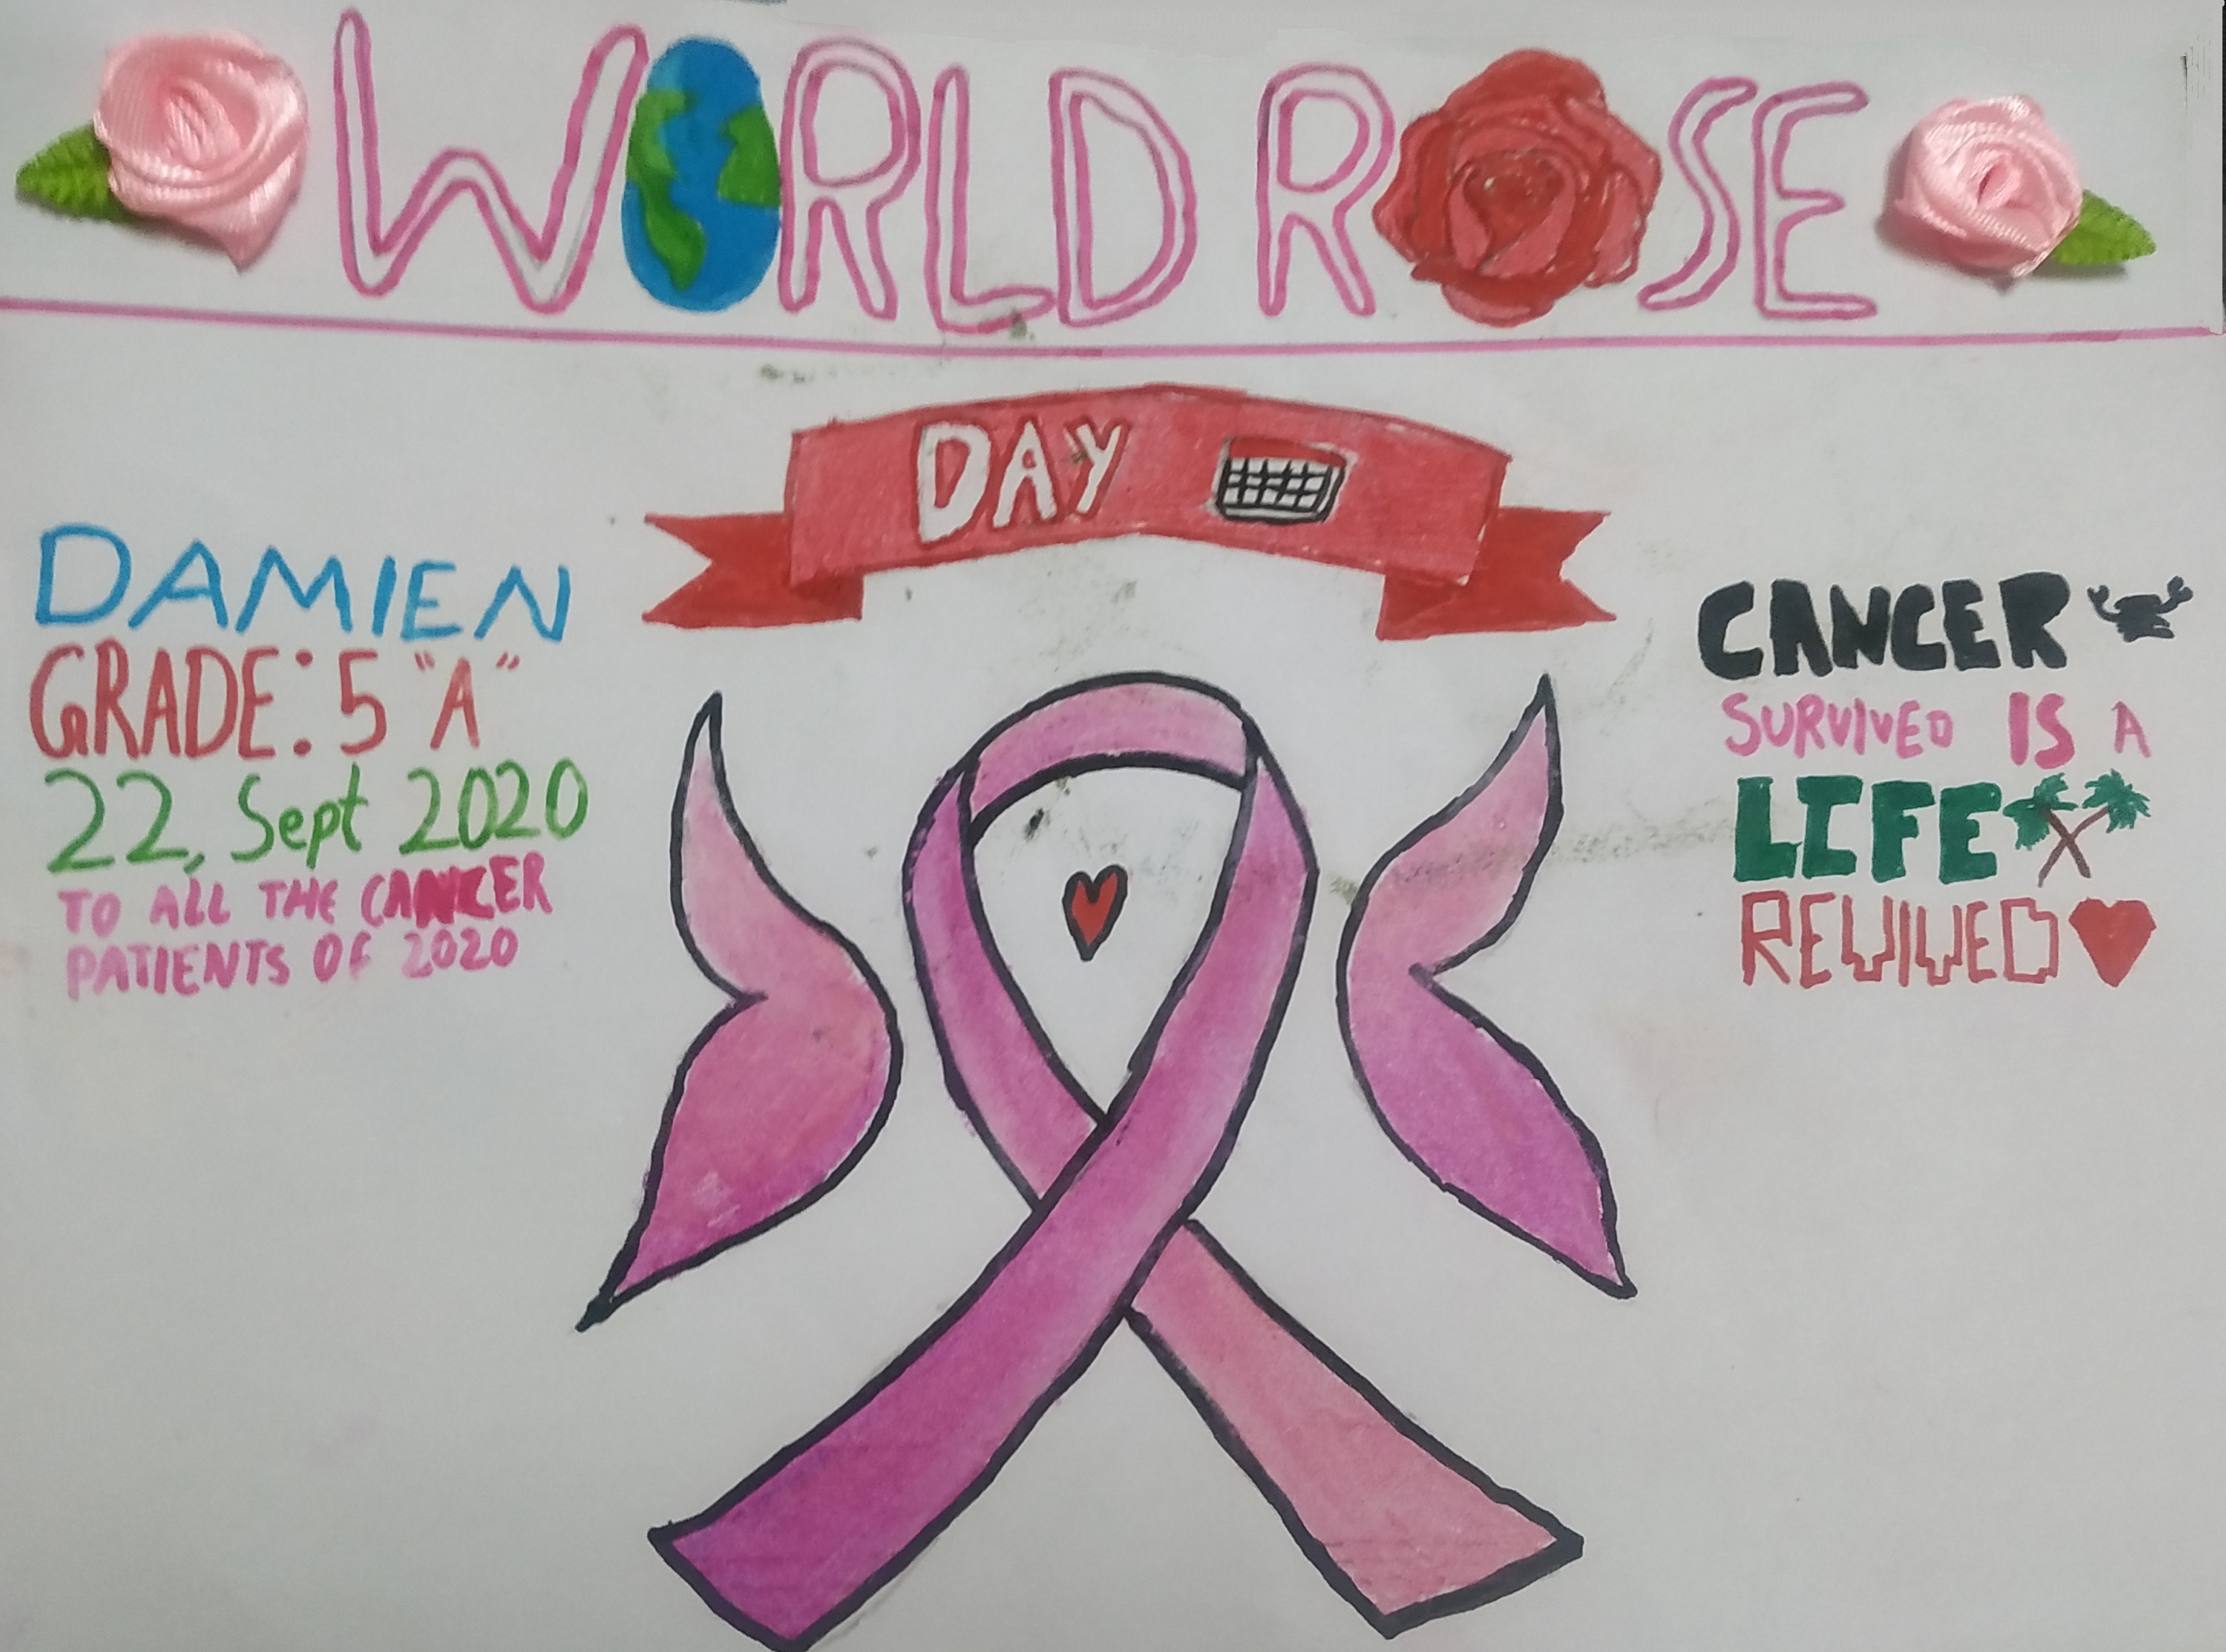 WORLD ROSE
DAY
DAMIEN
GRADE: 5 "A"
22, Sept 2020
TO ALL THE CANCER
PATIENTS OF 2020
CANCER
SURVIVED IS A
LIFE
REVIVED